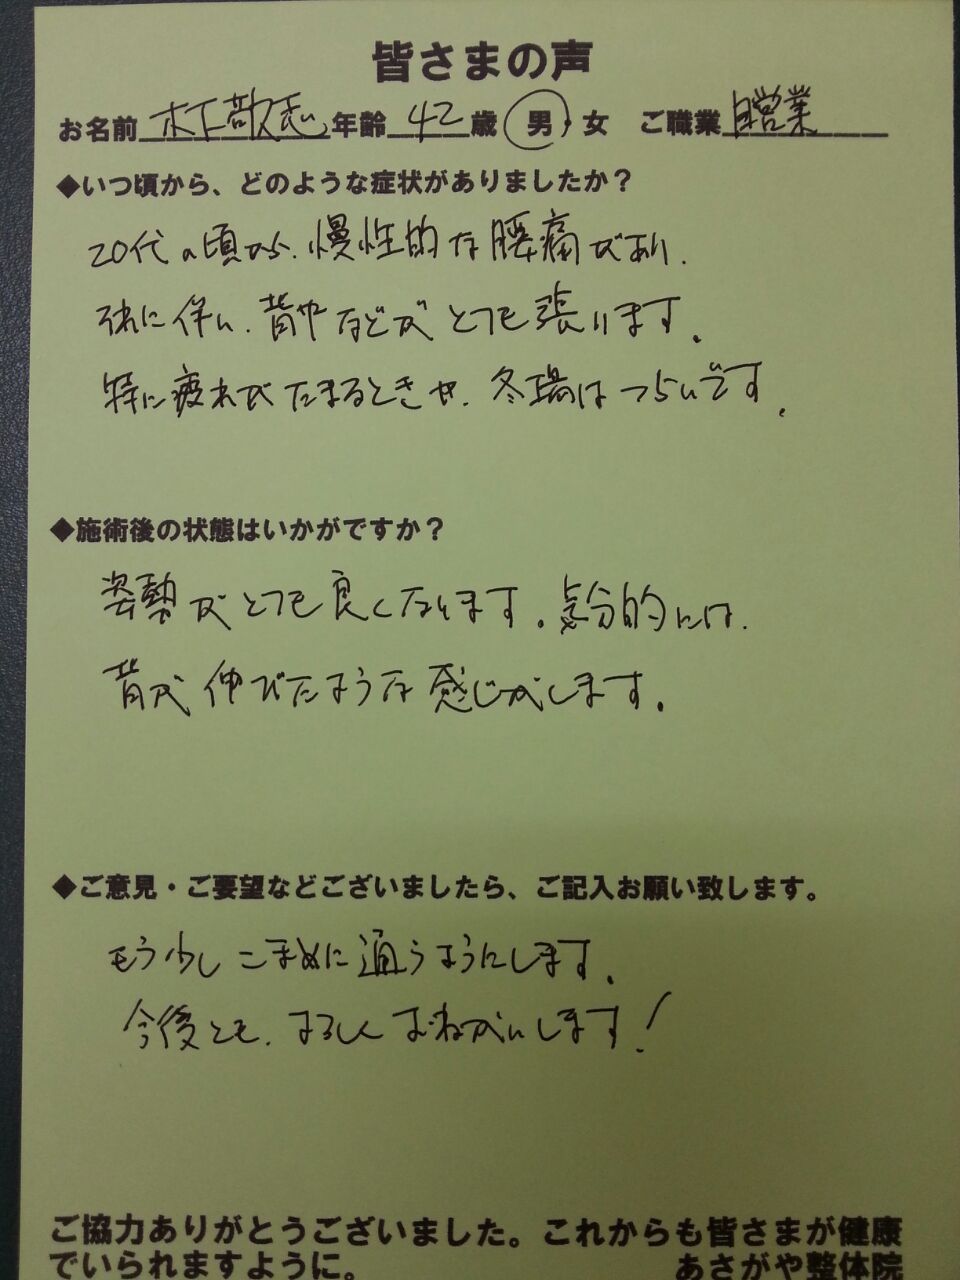 皆さまの声
お名前 木下敬志 年齢 42 歳 男・女 ご職業 自営業
◆いつ頃から、どのような症状がありましたか?
20代の頃から、慢性的な腰痛があり、
それに伴い、背中などがとても張ります。
特に疲れがたまるときや、冬場はつらいです。
◆施術後の状態はいかがですか?
姿勢がとても良くなります。気分的には、
背が伸びたような感じがします。
◆ご意見・ご要望などございましたら、ご記入お願い致します。
もう少しこまめに通うようにします。
今後とも、よろしくおねがいします!
ご協力ありがとうございました。これからも皆さまが健康
でいられますように。 あさがや整体院